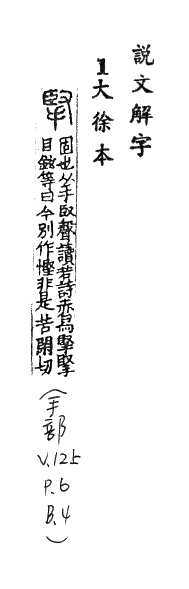 説文解字
1大徐本
掔
固也从手臤聲讀若詩赤舄掔掔
臣鉉等曰今別作慳非是苦閑切
(手部
V.125
P.6
B.4
)